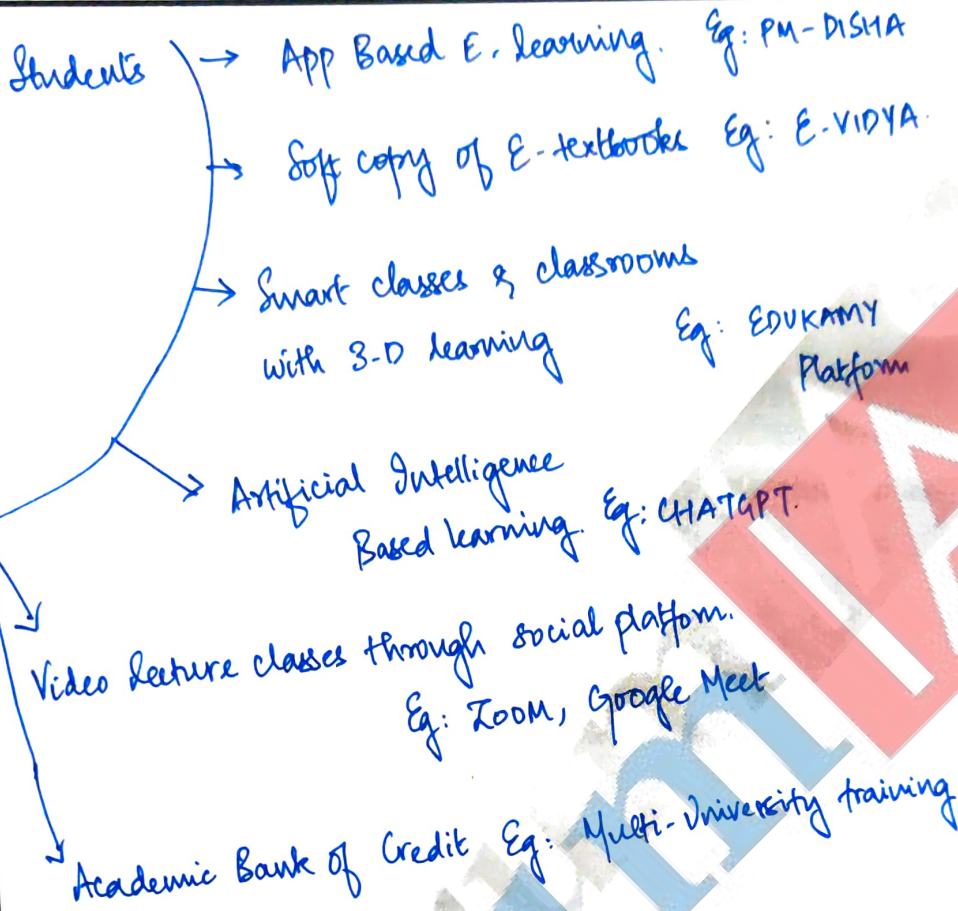 Students → App Based E-learning. Eg: PM-DISHA
→ Soft copy of E-textbooks Eg: E-VIDYA.
→ Smart classes & classrooms
with 3-D learning Eg: EDUKAMY
Platform
→ Artificial Intelligence
Based learning. Eg: CHATGPT.
Video lecture classes through social platfom.
Eg: ZOOM, Google Meet
Academic Bank of Credit Eg: Multi-University training